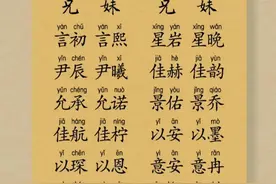 兄 妹 兄 妹
yán chū yán xī xīng yán xīng wǎn
言初 言熙 星岩 星晚
yǐn chén yǐn xī jiā hè jiā yùn
尹辰 尹曦 佳赫 佳韵
yǔn chéng yǔn nuò jǐng yòu jǐng qiáo
允承 允诺 景佑 景乔
jiā háng jiā níng yǐ ān yǐ mò
佳航 佳柠 以安 以墨
yǐ chēn yǐ ēn yì ān yì rǎn
以琛 以恩 意安 意冉